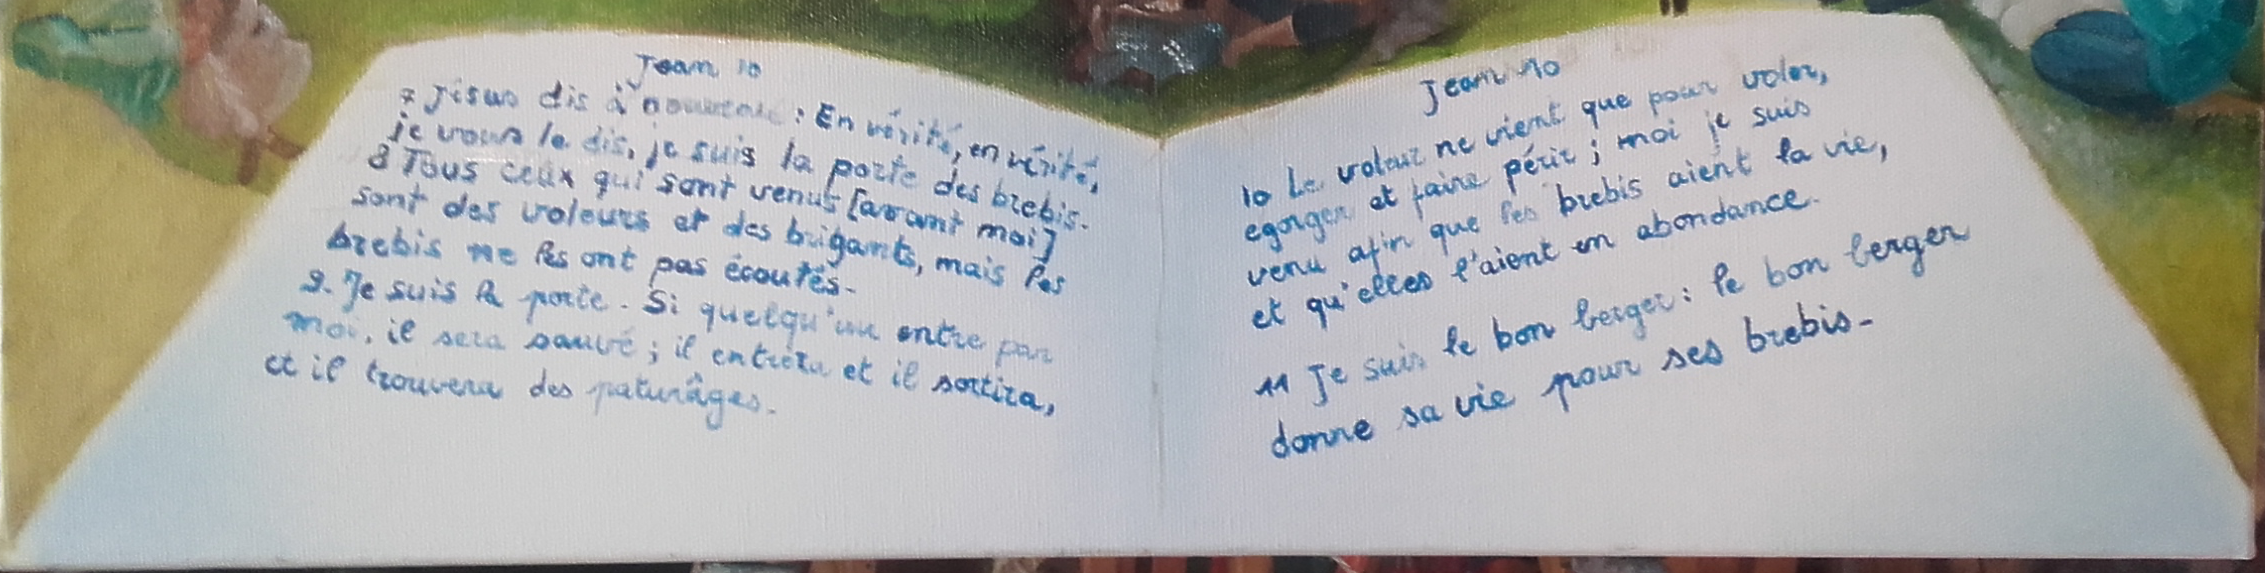 Jean 10
7 Jésus dis à nouveau : En vérité, en vérité,
je vous le dis, je suis la porte des brebis.
8 Tous ceux qui sont venus [avant moi]
sont des voleurs et des brigants, mais les
brebis ne les ont pas écoutés.
9. Je suis la porte. Si quelqu'un entre par
moi, il sera sauvé ; il entrera et il sortira,
et il trouvera des paturâges.
Jean 10
10 Le voleur ne vient que pour voler,
egorger et faire périr ; moi je suis
venu afin que les brebis aient la vie,
et qu'elles l'aient en abondance.
11 Je suis le bon berger : le bon berger
donne sa vie pour ses brebis.